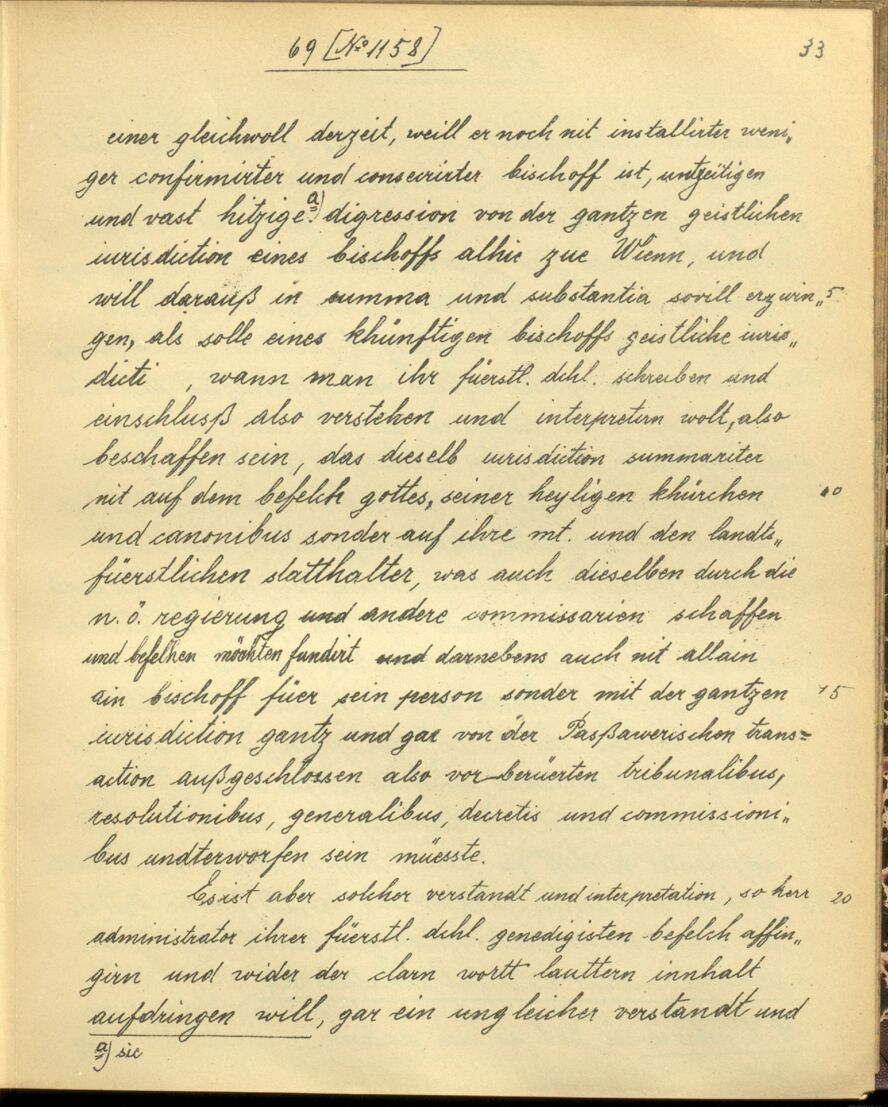 69 [No 1158]
33
einer gleichwoll derzeit, weill er noch nit installirter weni„
ger confirmirter und consecrirter bischoff ist, untzeitigen
und vast hitzige a) digression von der gantzen geistlichen
iurisdiction eines bischoffs alhie zue Wienn, und
will darauß in summa und substantia sovill erzwin„ 5
gen, als solle eines khünftigen bischoffs geistliche iuris„
dicti , wann man ihr füerstl. dchl. schreiben und
einschluß also verstehen und interpretirn wolt, also
beschaffen sein, das dieselb iurisdiction summariter
nit auf dem befelch gottes, seiner heyligen khürchen 10
und canonibus sonder auf ihre mt. und den landts„
füerstlichen statthalter, was auch dieselben durch die
n. ö. regierung und andere commissarien schaffen
und befelhen möchten fundirt und darnebens auch nit allain
ain bischoff füer sein person sonder mit der gantzen 15
iurisdiction gantz und gar von der Paßawerischen trans=
action außgeschlossen also vor berüerten tribunalibus,
resolutionibus, generalibus, decretis und commissioni„
bus undterworfen sein müesste.
Es ist aber solcher verstandt und interpretation, so herr 20
administrator ihrer füerstl. dchl. genedigisten befelch affin„
girn und wider der clarn wortt lauttern innhalt
aufdringen will, gar ein ungleicher verstandt und
a) sic